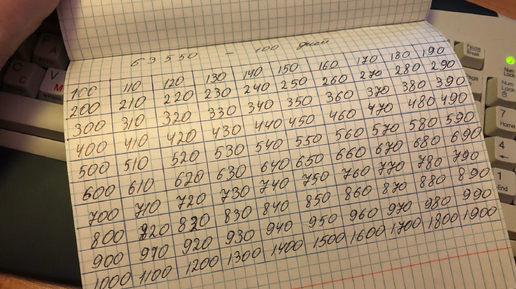 69550 - 100 дней
100 110 120 130 140 150 160 170 180 190
200 210 220 230 240 250 260 270 280 290
300 310 320 330 340 350 360 370 380 390
400 410 420 430 440 450 460 470 480 490
500 510 520 530 540 550 560 570 580 590
600 610 620 630 640 650 660 670 680 690
700 710 720 730 740 750 760 770 780 790
800 820 830 840 850 860 870 880 890
900 910 920 930 940 950 960 970 980 990
1000 1100 1200 1300 1400 1500 1600 1700 1800 1900
Pause
Num
Lock
7
4
1